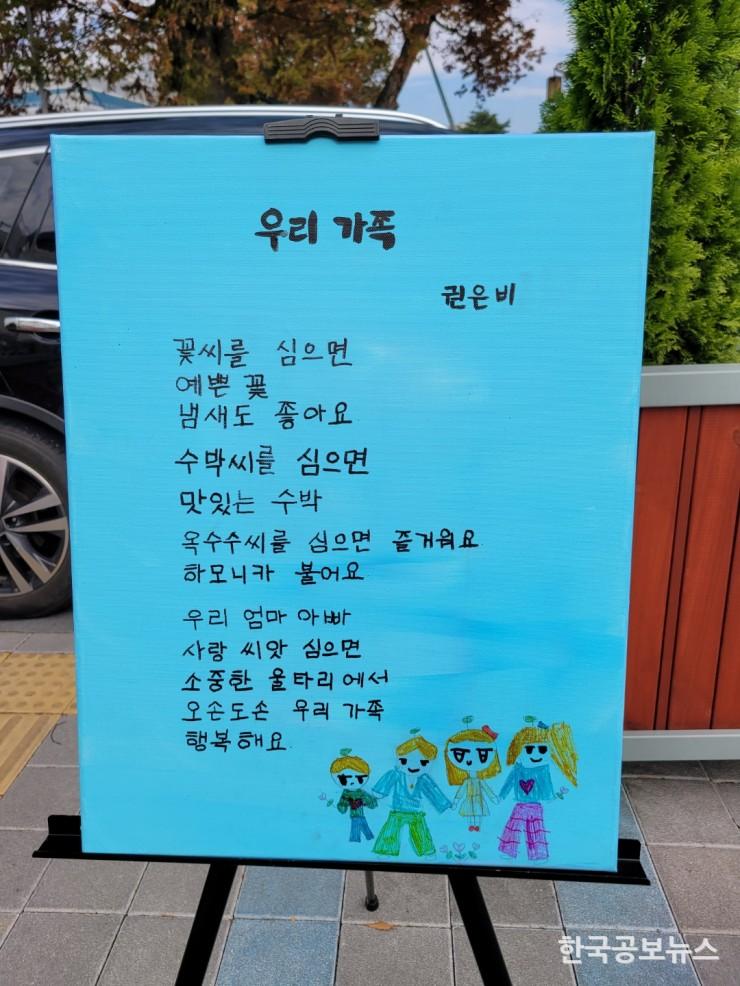 우리 가족
권은비
꽃씨를 심으면
예쁜 꽃
냄새도 좋아요
수박씨를 심으면
맛있는 수박
옥수수씨를 심으면 즐거워요
하모니카 불어요
우리 엄마 아빠
사랑 씨앗 심으면
소중한 울타리에서
오손도손 우리 가족
행복해요.
한국공보뉴스